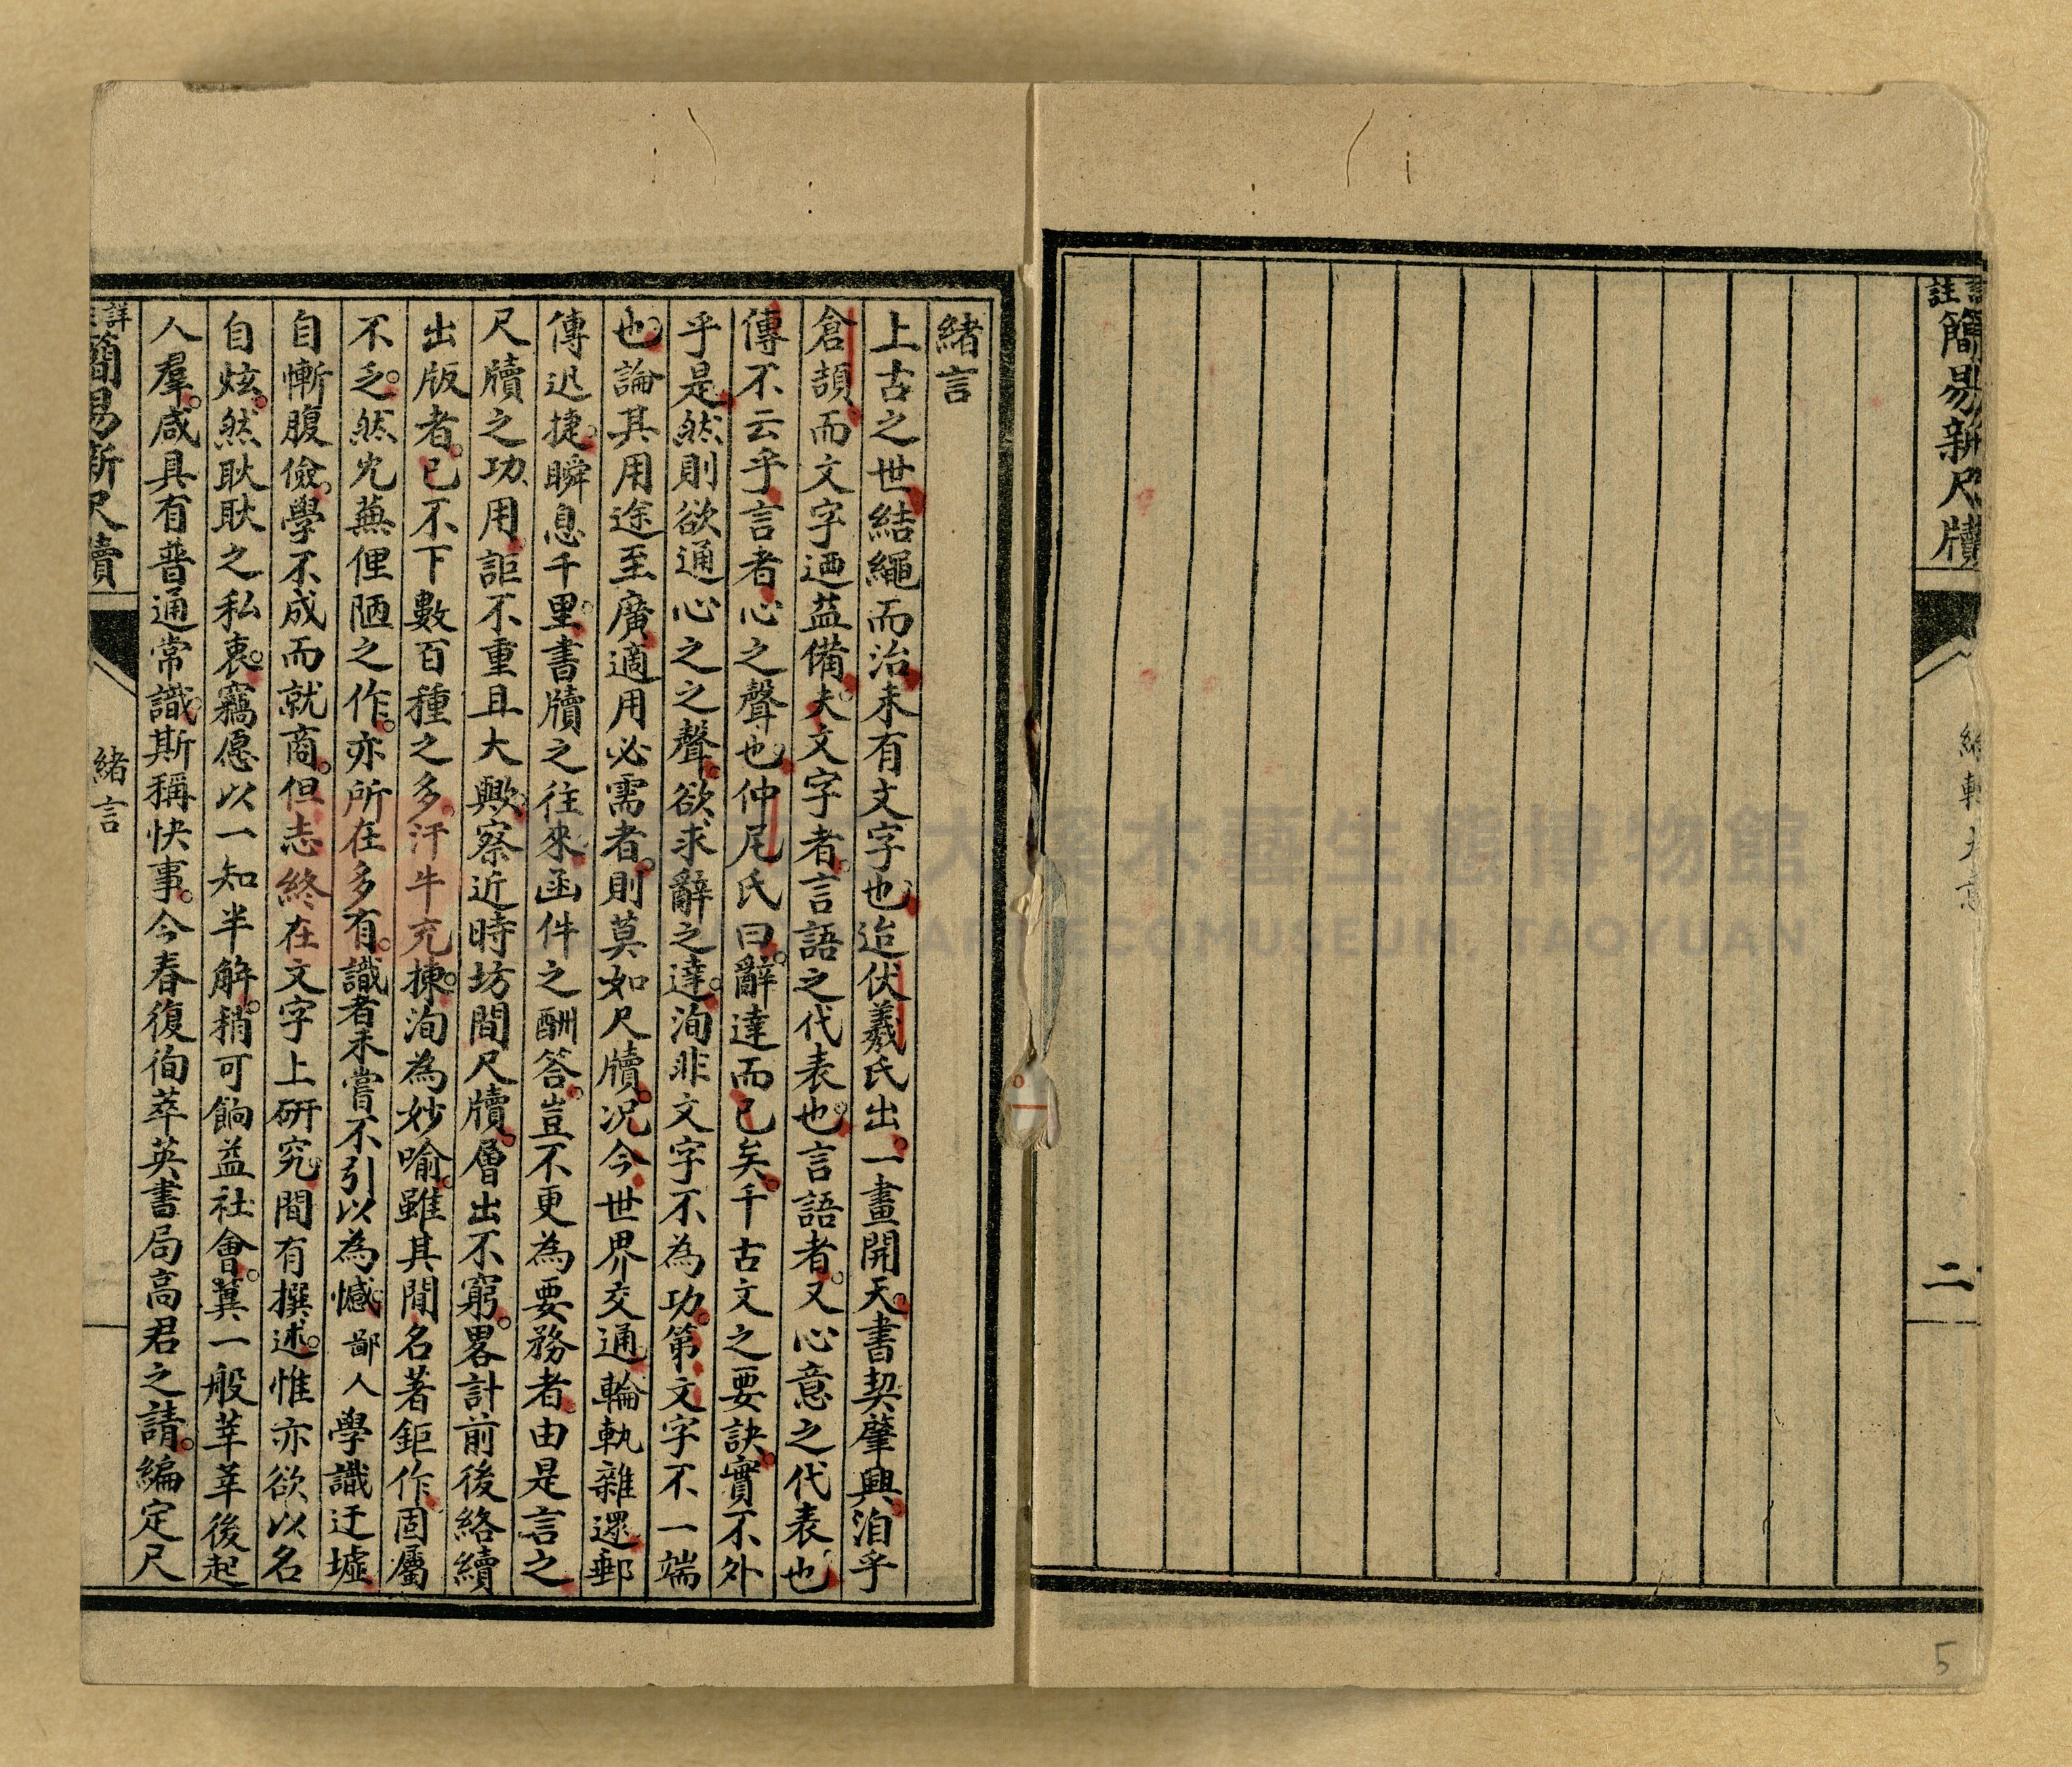 註
簡易新尺牘
二
5
緒言
上古之世結繩而治未有文字也迨伏羲氏出一畫開天書契肇興洎乎
倉頡而文字迺益備夫文字者言語之代表也言語者又心意之代表也
傳不云乎言者心之聲也仲尼氏曰辭達而已矣千古文之要訣實不外
乎是然則欲通心之之聲欲求辭之達洵非文字不為功第文字不一端
也論其用途至廣適用必需者則莫如尺牘況今世界交通輪軌雜遝郵
傳迅捷瞬息千里書牘之往來函件之酬答豈不更為要務者由是言之
尺牘之功用詎不重且大歟察近時坊間尺牘層出不窮畧計前後絡續
出版者已不下數百種之多汗牛充棟洵為妙喻雖其間名著鉅作固屬
不乏然冗蕪俚陋之作亦所在多有識者未嘗不引以為憾鄙人學識迂墟
自慚腹儉學不成而就商但志終在文字上研究間有撰述惟亦欲以名
自炫然耿耿之私衷竊愿以一知半解稍可餉益社會冀一般莘莘後起
人羣咸具有普通常識斯稱快事今春復徇萃英書局高君之請編定尺
詳
簡易新尺牘
緒言
大溪木藝生態博物館
ART ECOMUSEUM, TAOYUAN